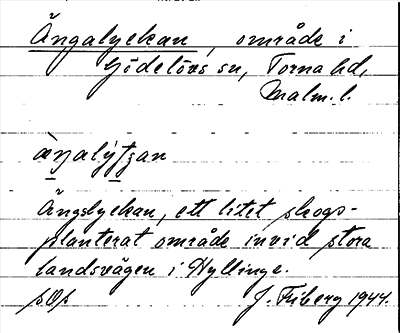 Ängalyckan, område i
Gödelövs sn, Torna hd,
Malm. l.
àŋalýt̠z̠an
Ängslyckan, ett litet skogs-
planterat område invid stora
landsvägen i Hyllinge.
J. Friberg 1944.